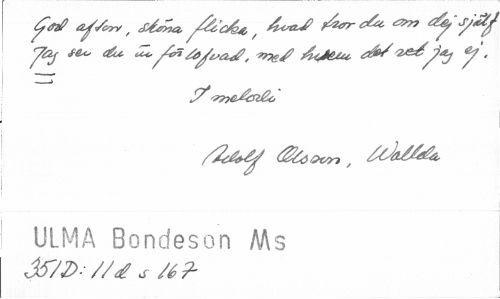 God afton, sköna flicka, hvad tror du om dej sjelf
Jag ser du är förlofvad, med hvem det vet jag ej.
I melodi
Adolf Olsson, Wallda
ULMA Bondeson Ms
351D: 11d s 167